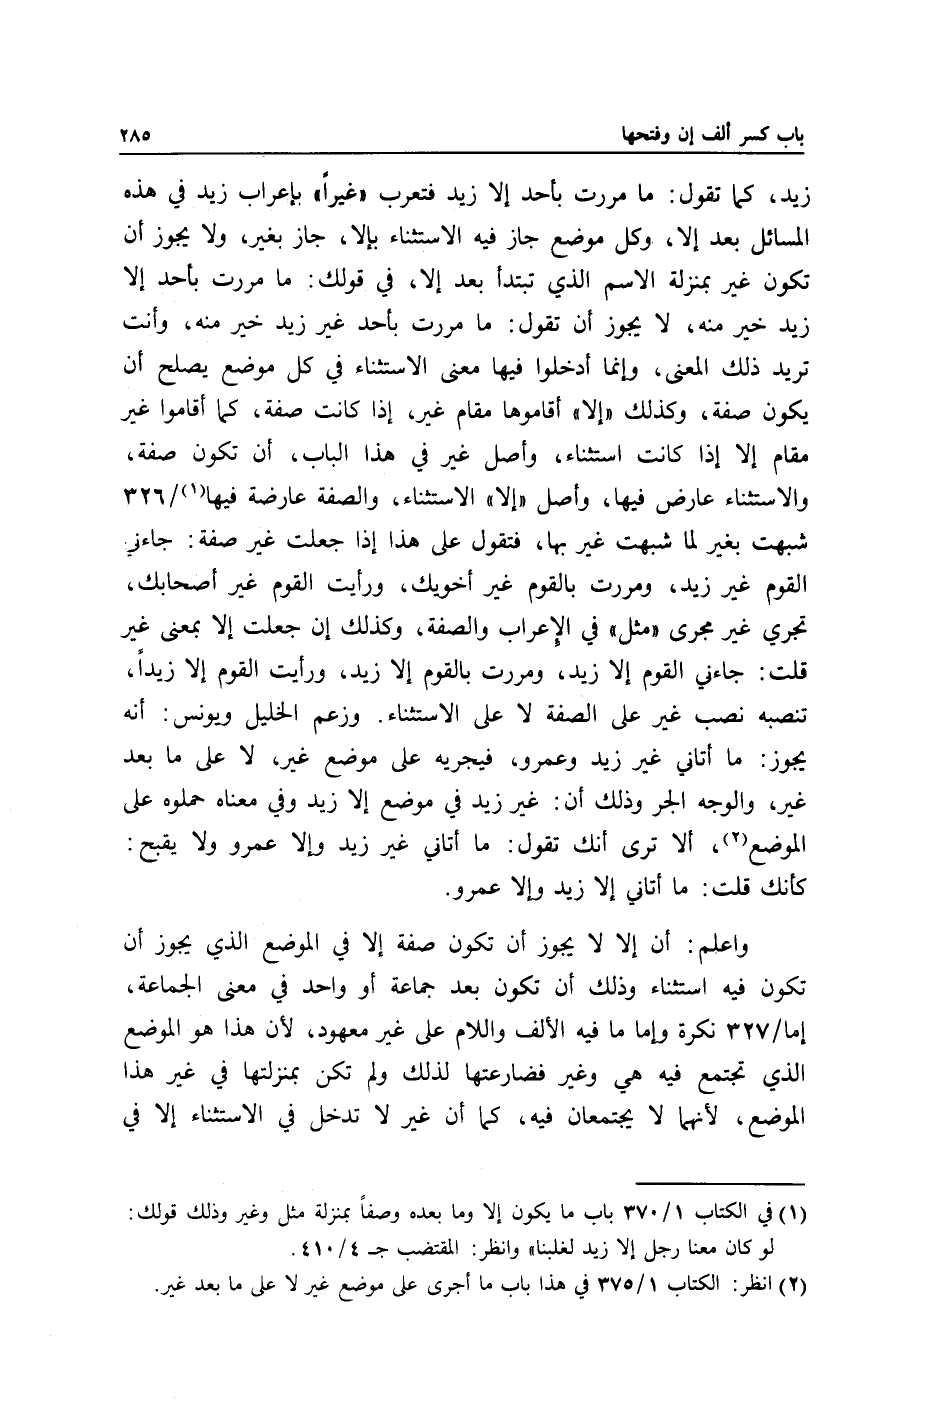 باب كسر ألف إن وفتحها ٢٨٥
زيد، كما تقول: ما مررت بأحد إلا زيد فتعرب «غيراً» بإعراب زيد في هذه
المسائل بعد إلا، وكل موضع جاز فيه الاستثناء بإلا، جاز بغير، ولا يجوز أن
تكون غير بمنزلة الاسم الذي تبتدأ بعد إلا، في قولك: ما مررت بأحد إلا
زيد خير منه، لا يجوز أن تقول: ما مررت بأحد غير زيد خير منه، وأنت
تريد ذلك المعنى، وإنما أدخلوا فيها معنى الاستثناء في كل موضع يصلح أن
يكون صفة، وكذلك «إلا» أقاموها مقام غير، إذا كانت صفة، كما أقاموا غير
مقام إلا إذا كانت استثناء، وأصل غير في هذا الباب، أن تكون صفة،
والاستثناء عارض فيها، وأصل «إلا» الاستثناء، والصفة عارضة فيها(١)/٣٢٦
شبهت بغير لما شبهت غير بها، فتقول على هذا إذا جعلت غير صفة: جاءني
القوم غير زيد، ومررت بالقوم غير أخويك، ورأيت القوم غير أصحابك،
تجري غير مجرى «مثل» في الإعراب والصفة، وكذلك إن جعلت إلا بمعنى غير
قلت: جاءني القوم إلا زيد، ومررت بالقوم إلا زيد، ورأيت القوم إلا زيداً،
تنصبه نصب غير على الصفة لا على الاستثناء. وزعم الخليل ويونس: أنه
يجوز: ما أتاني غير زيد وعمرو، فيجريه على موضع غير، لا على ما بعد
غير، والوجه الجر وذلك أن: غير زيد في موضع إلا زيد وفي معناه حملوه على
الموضع(٢)، ألا ترى أنك تقول: ما أتاني غير زيد وإلا عمرو ولا يقبح:
كأنك قلت: ما أتاني إلا زيد وإلا عمرو.
واعلم: أن إلا لا يجوز أن تكون صفة إلا في الموضع الذي يجوز أن
تكون فيه استثناء وذلك أن تكون بعد جماعة أو واحد في معنى الجماعة،
إما/٣٢٧ نكرة وإما ما فيه الألف واللام على غير معهود، لأن هذا هو الموضع
الذي تجتمع فيه هي وغير فضارعتها لذلك ولم تكن بمنزلتها في غير هذا
الموضع، لأنهما لا يجتمعان فيه، كما أن غير لا تدخل في الاستثناء إلا في
(١) في الكتاب ٣٧٠/١ باب ما يكون إلا وما بعده وصفاً بمنزلة مثل وغير وذلك قولك:
لو كان معنا رجل إلا زيد لغلبنا» وانظر: المقتضب جـ ٤١٠/٤.
(٢) انظر: الكتاب ٣٧٥/١ في هذا باب ما أجرى على موضع غير لا على ما بعد غير.